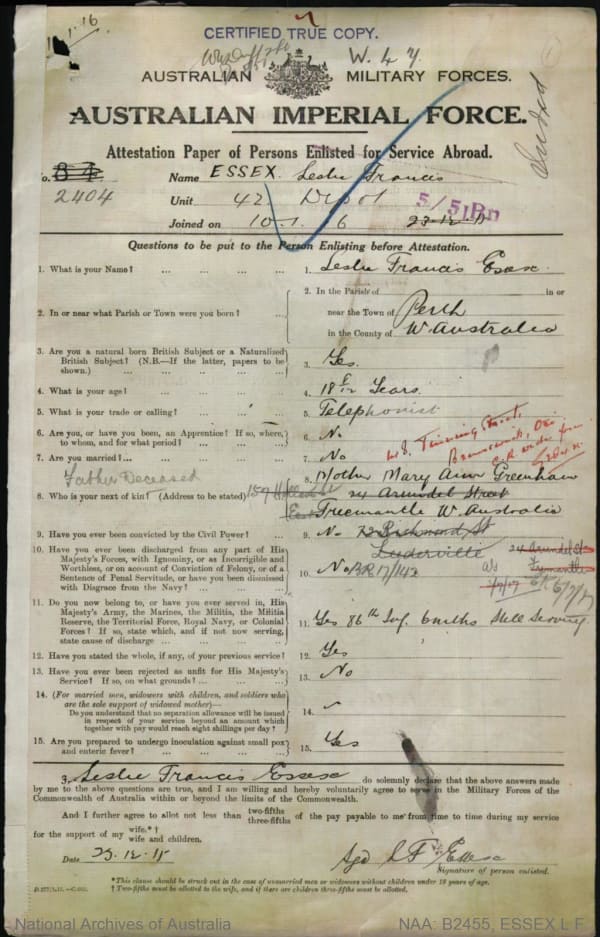 1.16
CERTIFIED TRUE COPY.
W. 4 7.
AUSTRALIAN MILITARY FORCES.
AUSTRALIAN IMPERIAL FORCE.
Attestation Paper of Persons Enlisted for Service Abroad.
No. 2404
Name ESSEX. Leslie Francis
Unit 42 Depot 5/51Bn
Joined on 10.1.6 23-12-15
Questions to be put to the Person Enlisting before Attestation.
1. What is your Name? ... 1. Leslie Francis Essex.
2. In or near what Parish or Town were you born? ... 2. In the Parish of in or
near the Town of Perth
in the County of W. Australia
3. Are you a natural born British Subject or a Naturalized
British Subject? (N.B.—If the latter, papers to be
shown.) ... 3. Yes.
4. What is your age? ... 4. 18 8/12 Years.
5. What is your trade or calling? ... 5. Telephonist
6. Are you, or have you been, an Apprentice? If so, where,
to whom, and for what period? ... 6. No
7. Are you married? ... 7. No
Father Deceased
8. Who is your next of kin? (Address to be stated) 8. Mother Mary Ann Greenham
24 Arundel Street
Freemantle W. Australia
9. Have you ever been convicted by the Civil Power? ... 9. No
72 Richmond St
Leederville
24 Arundel St
Fremantle
10. Have you ever been discharged from any part of His
Majesty's Forces, with Ignominy, or as Incorrigible and
Worthless, or on account of Conviction of Felony, or of a
Sentence of Penal Servitude, or have you been dismissed
with Disgrace from the Navy? ... 10. No
11. Do you now belong to, or have you ever served in, His
Majesty's Army, the Marines, the Militia, the Militia
Reserve, the Territorial Force, Royal Navy, or Colonial
Forces? If so, state which, and if not now serving,
state cause of discharge ... 11. Yes 86th Inf. 6 mths Still Serving
12. Have you stated the whole, if any, of your previous service? 12. Yes
13. Have you ever been rejected as unfit for His Majesty's
Service? If so, on what grounds? ... 13. No
14. (For married men, widowers with children, and soldiers who
are the sole support of widowed mother)—
Do you understand that no separation allowance will be issued
in respect of your service beyond an amount which
together with pay would reach eight shillings per day? 14.
15. Are you prepared to undergo inoculation against small pox
and enteric fever? ... 15. Yes
I, Leslie Francis Essex do solemnly declare that the above answers made
by me to the above questions are true, and I am willing and hereby voluntarily agree to serve in the Military Forces of the
Commonwealth of Australia within or beyond the limits of the Commonwealth.
And I further agree to allot not less than two-fifths three-fifths of the pay payable to me from time to time during my service
for the support of my wife.*† wife and children.
Date 23.12.15 Sgd L F Essex
Signature of person enlisted.
*This clause should be struck out in the case of unmarried men or widowers without children under 18 years of age.
† Two-fifths must be allotted to the wife, and if there are children three-fifths must be allotted.
National Archives of Australia NAA: B2455, ESSEX L F